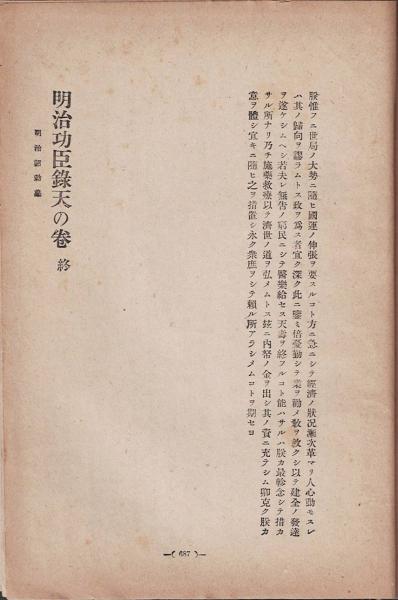 朕惟フニ世局ノ大勢ニ隨ヒ國運ノ伸張ヲ要スルコト方ニ急ニシテ經濟ノ狀況漸次革マリ人心動モスレ
ハ其ノ歸向ヲ謬ラムトス政ヲ爲ス者宜ク深ク此ニ鑒ミ倍〻憂勤シテ業ヲ勸メ敎ヲ敦クシ以テ健全ノ發達
ヲ遂ケシムヘシ若夫レ無告ノ窮民ニシテ醫藥給セス天壽ヲ終フルコト能ハサルハ朕カ最軫念シテ措カ
サル所ナリ乃チ施藥救療以テ濟世ノ道ヲ弘メムトス玆ニ內帑ノ金ヲ出シ其ノ資ニ充テシム卿克ク朕カ
意ヲ體シ宜キニ隨ヒ之ヲ措置シ永ク衆庶ヲシテ賴ル所アラシメムコトヲ期セヨ
明治功臣錄天の卷 終
明治詔勅集
—( 687 )—